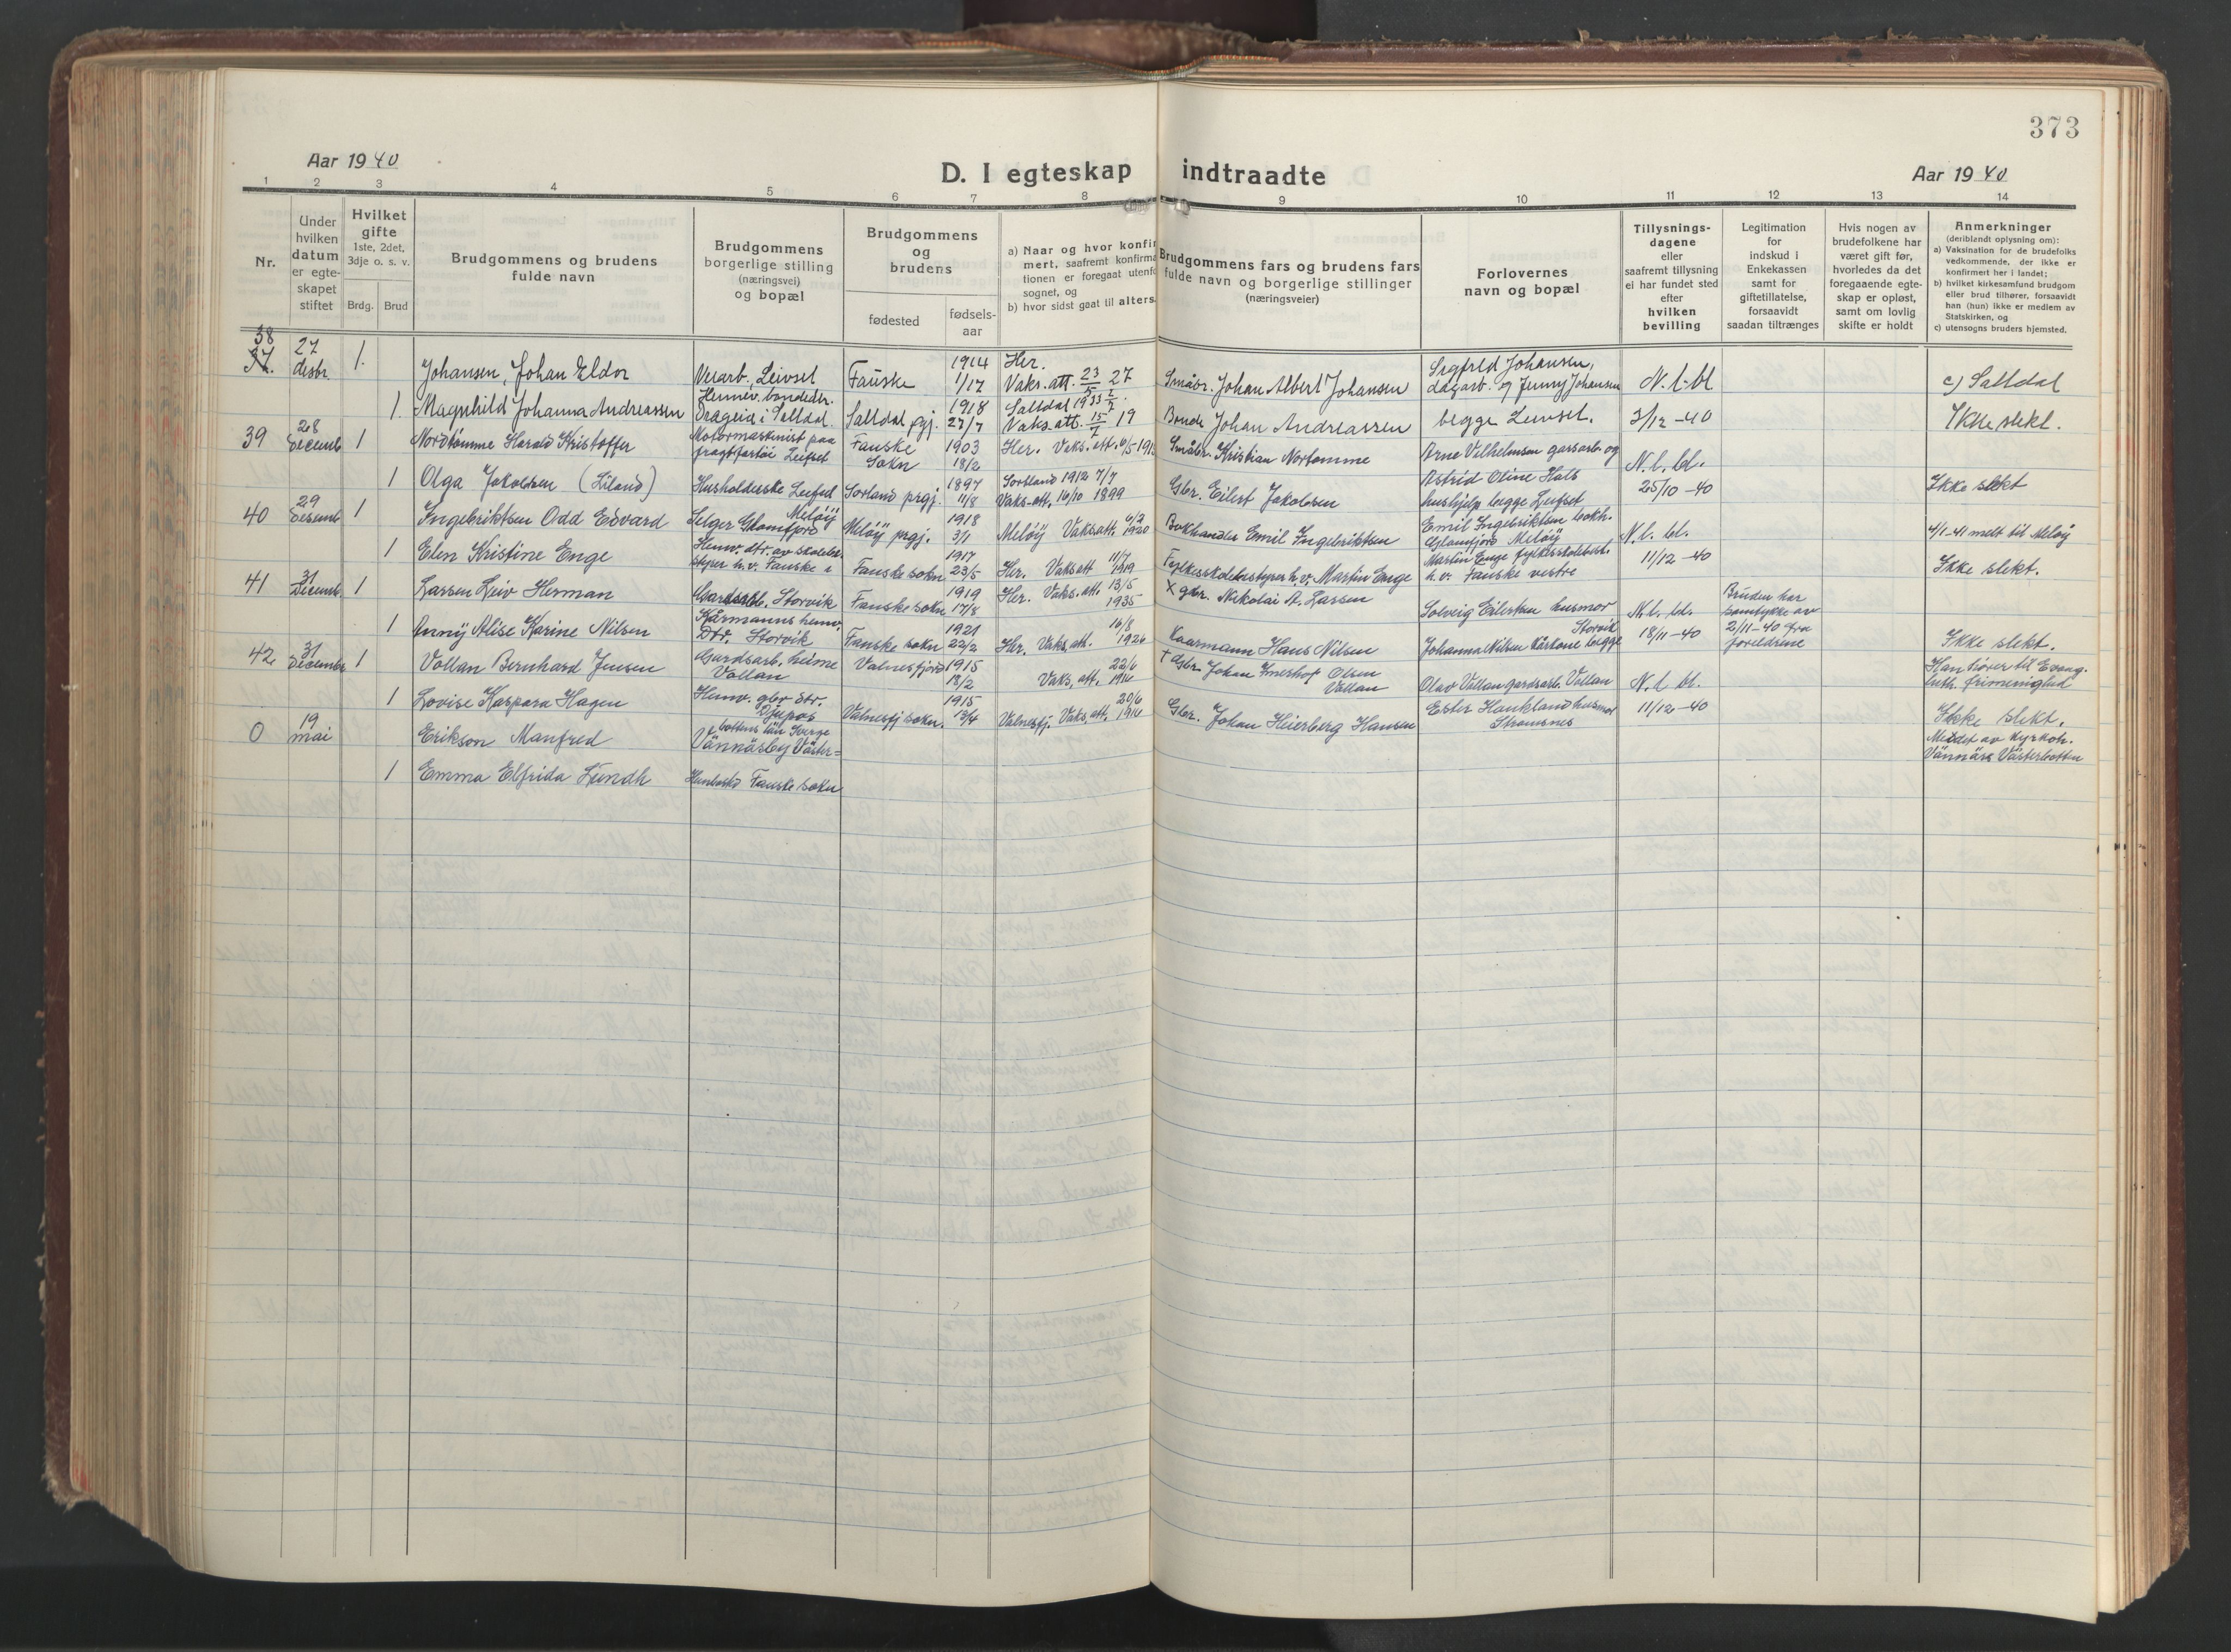 373
Aar 1940
D. I egteskap indtraadte
Aar 1940
1 2 3 4 5 6 7 8 9 10 11 12 13 14
Nr.
Under hvilken datum er egteskapet stiftet
Hvilket gifte
1ste, 2det, 3dje o. s. v.
Brdg. Brud
Brudgommens og brudens fulde navn
Brudgommens borgerlige stilling (næringsvei) og bopæl
Brudgommens og brudens
fødested
fødsels-aar
a) Naar og hvor konfirmert, saafremt konfirmationen er foregaat utenfor sognet, og
b) hvor sidst gaat til alters.
Brudgommens fars og brudens fars fulde navn og borgerlige stillinger (næringsveier)
Forlovernes navn og bopæl
Tillysnings-dagene eller saafremt tillysning ei har fundet sted efter hvilken bevilling
Legitimation for indskud i Enkekassen samt for giftetillatelse, forsaavidt saadan tiltrænges
Hvis nogen av brudefolkene har været gift før, hvorledes da det foregaaende egteskap er opløst, samt om lovlig skifte er holdt
Anmerkninger
(deriblandt oplysning om):
a) Vaksination for de brudefolks vedkommende, der ikke er konfirmert her i landet;
b) hvilket kirkesamfund brudgom eller brud tilhører, forsaavidt han (hun) ikke er medlem av Statskirken, og
c) utensogns bruders hjemsted.
38
37.
27 desbr. 1. Johansen, Johan Eldor
Leivset
Fauske
1914 1/17
Her. Vaks. att. 23/5 27
Småbr. Johan Albert Johansen
Sigfred Johansen, dagarb. og Jenny Johansen
N. l. bl
c) Saltdal
1. Magnhild Johanna Andreassen
Hemev. bondedtr. Drageid i Saltdal.
Saltdal pgj.
1918 27/7
Saltdal 1933 2/7. Vaks. att. 15/7 19
Bonde Johan Andreassen
begge Leivset.
3/12-40
Ikke slekt.
39 28 Decemb 1 Nordtømme Harald Kristoffer
Motormaskinist paa fragtfartøi Leifset
Fauske Sokn
1903 18/2
Her. Vaks. att.
Småbr. Kristian Nortømme
Arne Vilhelmsen gardsarb. og
N. l. bl.
1 Olga Jakobsen (Liland)
Husholderske Leifset
Sortland prgj.
1897 11/8
Sortland 1912 7/7 Vaks. att. 16/10 1899
Gbr. Eilert Jakobsen
Astrid Oline Hals hushjelp begge Leifset
25/10-40
Ikke slekt
40 29 Desemb 1 Ingebriktsen Odd Edvard
Selger Glomfjord Meløy
Meløy prgj.
1918 3/1
Meløy Vaks att. 6/2 1920
Bokhandler Emil Ingebriktsen
Emil Ingebriktsen bokh. Glomfjord Meløy
N. l. bl.
4/1-41 melt til Meløy
1 Elen Kristine Enge
Hemv. dtr. av skolebestyrer h.v. Fauske
Fauske sokn
1917 23/5
Her. Vaks att 11/7 1919
Fylkesskolebestyrer h.v. Martin Enge
Martin Enge fylkesskolebest. h.v. Fauske vestre
11/12-40
Ikke slekt.
41 31 Decemb. 1 Larsen Leiv Herman
Gardsarb. Storvik
Fauske sokn
1919 17/8
Her. Vaks. att. 13/5 1935
X gbr. Nikolai A. Larsen
Solveig Eilertsen husmor Storvik
N. l. bl.
Bruden har samtykke av 2/11-40 fra foreldrene
1 Anny Alise Karine Nilsen
Kårmanns hemv. Dtr. Storvik
Fauske sokn
1921 22/2
Her. Vaks. att. 16/8 1926
Kaarmann Hans Nilsen
Johanna Nilsen Kårkone begge
18/11-40
Ikke slekt.
42 31 Decembr 1 Vollan Bernhard Jensen
Gardsarb. heime Vollan
Valnesfjord
1915 18/2
Vaks. att. 22/6 1916
+ Gbr. Johan Imerhof Olsen Vollan
Olav Vollan gardsarb. Vollan
N. l. bl.
Han hører til Evang. luth. frimenighed
1 Lovise Kaspara Hagen
Hemv. gbr dtr. Djupos
Valnesfj sokn.
1915 13/4
Valnesfj. Vaks. att. 20/6 1916
Gbr. Johan Heierberg Hansen
Ester Haukland husmor Strømsnes
11/12-40
Ikke slekt.
0 19 mai Erikson Manfred
Vännäsby Väster=bottens län Sverge
Meldet av kyrkoh. Vännäs Västerbotten
1 Emma Elfrida Lundh
Fauske sokn